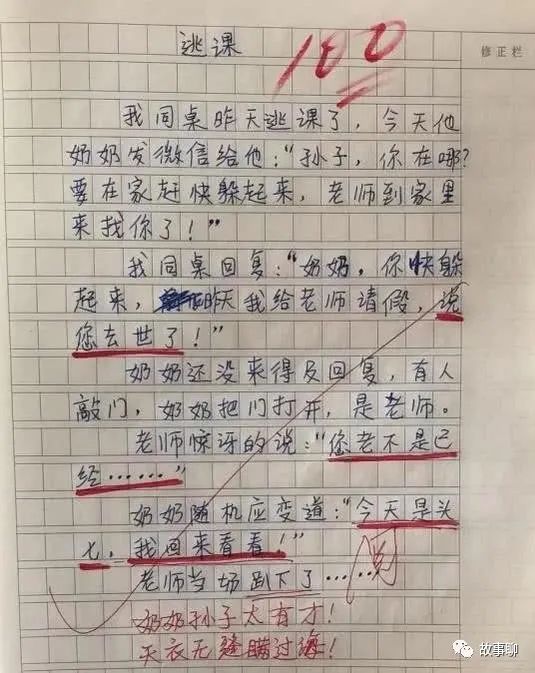 逃课
100
修正栏
我同桌昨天逃课了，今天他
奶奶发微信给他："孙子，你在哪？
要在家赶快躲起来，老师到家里
来找你了！"
我同桌回复："奶奶，你快躲
起来，昨天我给老师请假，说
您去世了！"
奶奶还没来得及回复，有人
敲门，奶奶把门打开，是老师。
老师惊讶的说："您老不是已
经……"
奶奶随机应变道："今天是头
七，我回来看看！"
老师当场趴下了……
阅
奶奶孙子太有才！
天衣无缝瞒过海！
故事聊